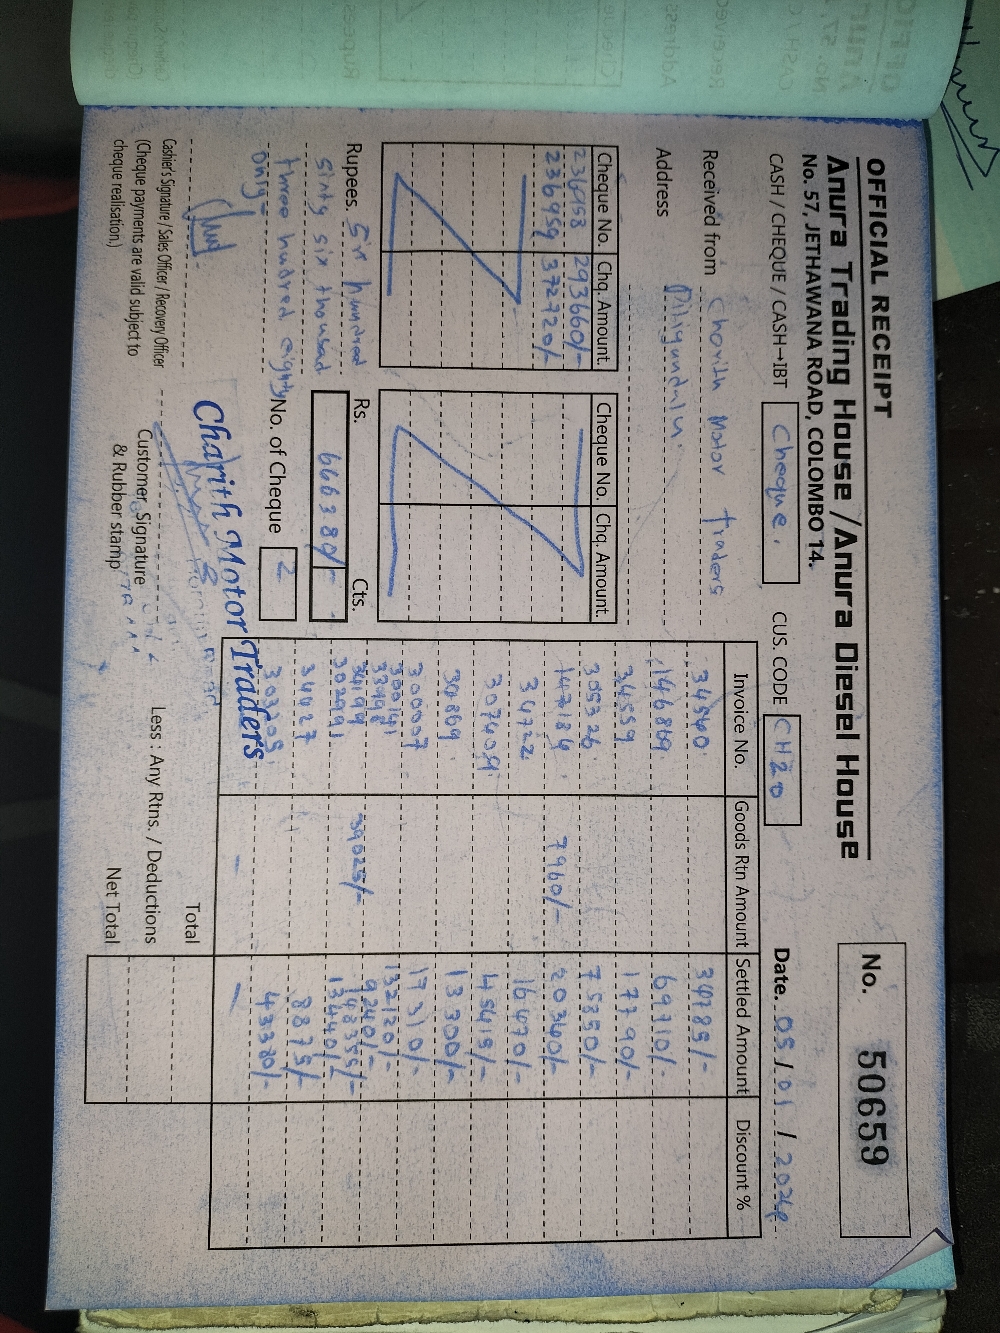 OFFICIAL RECEIPT
No. 50659
Anura Trading House / Anura Diesel House
No. 57, JETHAWANA ROAD, COLOMBO 14.
CASH / CHEQUE / CASH→IBT Cheque. CUS. CODE CH20 Date. 05 / 01 / 2024
Received from Charith Motor Traders
Address Diigundalu.
Cheque No. Chq. Amount.
236958 293660/-
236959 372720/-
Cheque No. Chq. Amount.
Rupees. Six hundred
sixty six thousad
three hudred eighty
only
Rs. Cts.
666380/-
No. of Cheque 2
Invoice No. Goods Rtn Amount Settled Amount Discount %
34540 34185/-
146869 69710/-
34559 17790/-
305326 75850/-
147184 7960/- 20360/-
34722 16470/-
307405 45415/-
30869 13300/-
300007 17310/-
132120/-
9240/-
34199 39025/- 148355/-
30299 13440/-
34427 8875/-
303505 43380/-
- -
Charith Motor Traders
Cashier's Signature / Sales Officer / Recovery Officer
(Cheque payments are valid subject to
cheque realisation.)
Customer Signature
& Rubber stamp
Total
Less : Any Rtns. / Deductions
Net Total